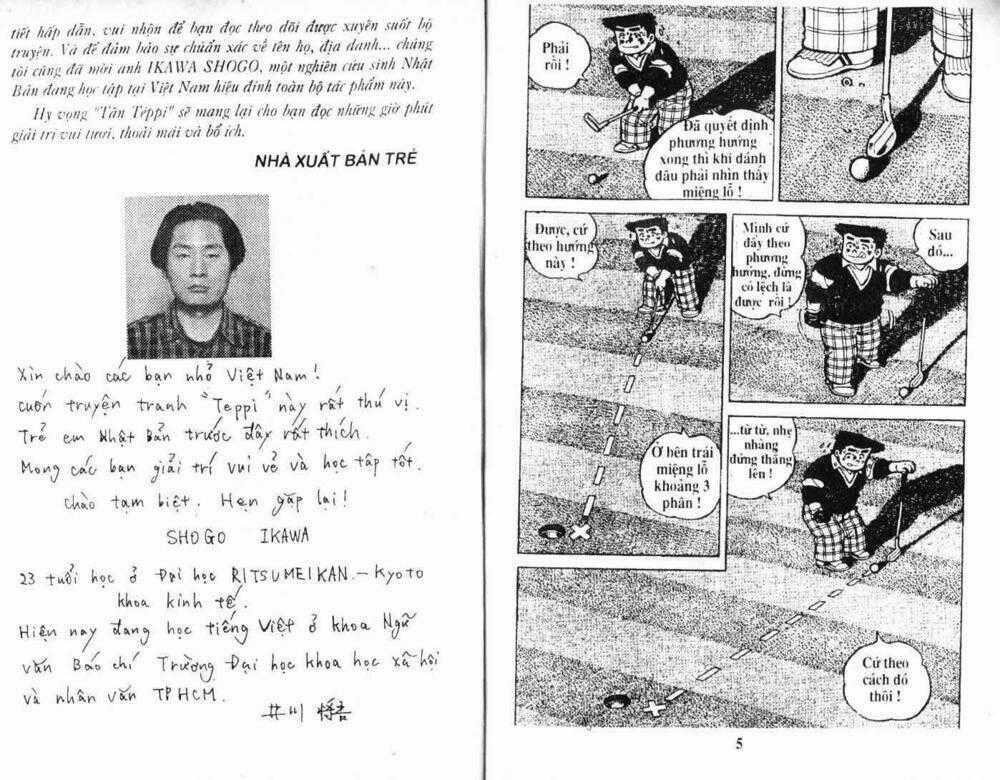 tiết hấp dẫn, vui nhộn để bạn đọc theo dõi được xuyên suốt bộ
truyện. Và để đảm bảo sự chuẩn xác về tên họ, địa danh... chúng
tôi cũng đã mời anh IKAWA SHOGO, một nghiên cứu sinh Nhật
Bản đang học tập tại Việt Nam hiệu đính toàn bộ tác phẩm này.
Hy vọng "Tân Têppi" sẽ mang lại cho bạn đọc những giờ phút
giải trí vui tươi, thoải mái và bổ ích.
NHÀ XUẤT BẢN TRẺ
Xin chào các bạn nhỏ Việt Nam!
cuốn truyện tranh "Teppi" này rất thú vị.
Trẻ em Nhật Bản trước đây rất thích.
Mong các bạn giải trí vui vẻ và học tập tốt.
chào tạm biệt. Hẹn gặp lại!
SHOGO IKAWA
23 tuổi học ở Đại học RITSUMEIKAN.-Kyoto
khoa kinh tế.
Hiện nay đang học tiếng Việt ở khoa Ngữ
văn Báo chí Trường Đại học khoa học xã hội
và nhân văn TPHCM.
井川 将吾
Phải
rồi !
Đã quyết định
phương hướng
xong thì khi đánh
đâu phải nhìn thấy
miệng lỗ !
Được, cứ
theo hướng
này !
Ở bên trái
miệng lỗ
khoảng 3
phân !
Mình cứ
đẩy theo
phương
hướng, đừng
có lệch là
được rồi !
Sau
đó...
...từ từ, nhẹ
nhàng
đứng thẳng
lên !
Cứ theo
cách đó
thôi !
5